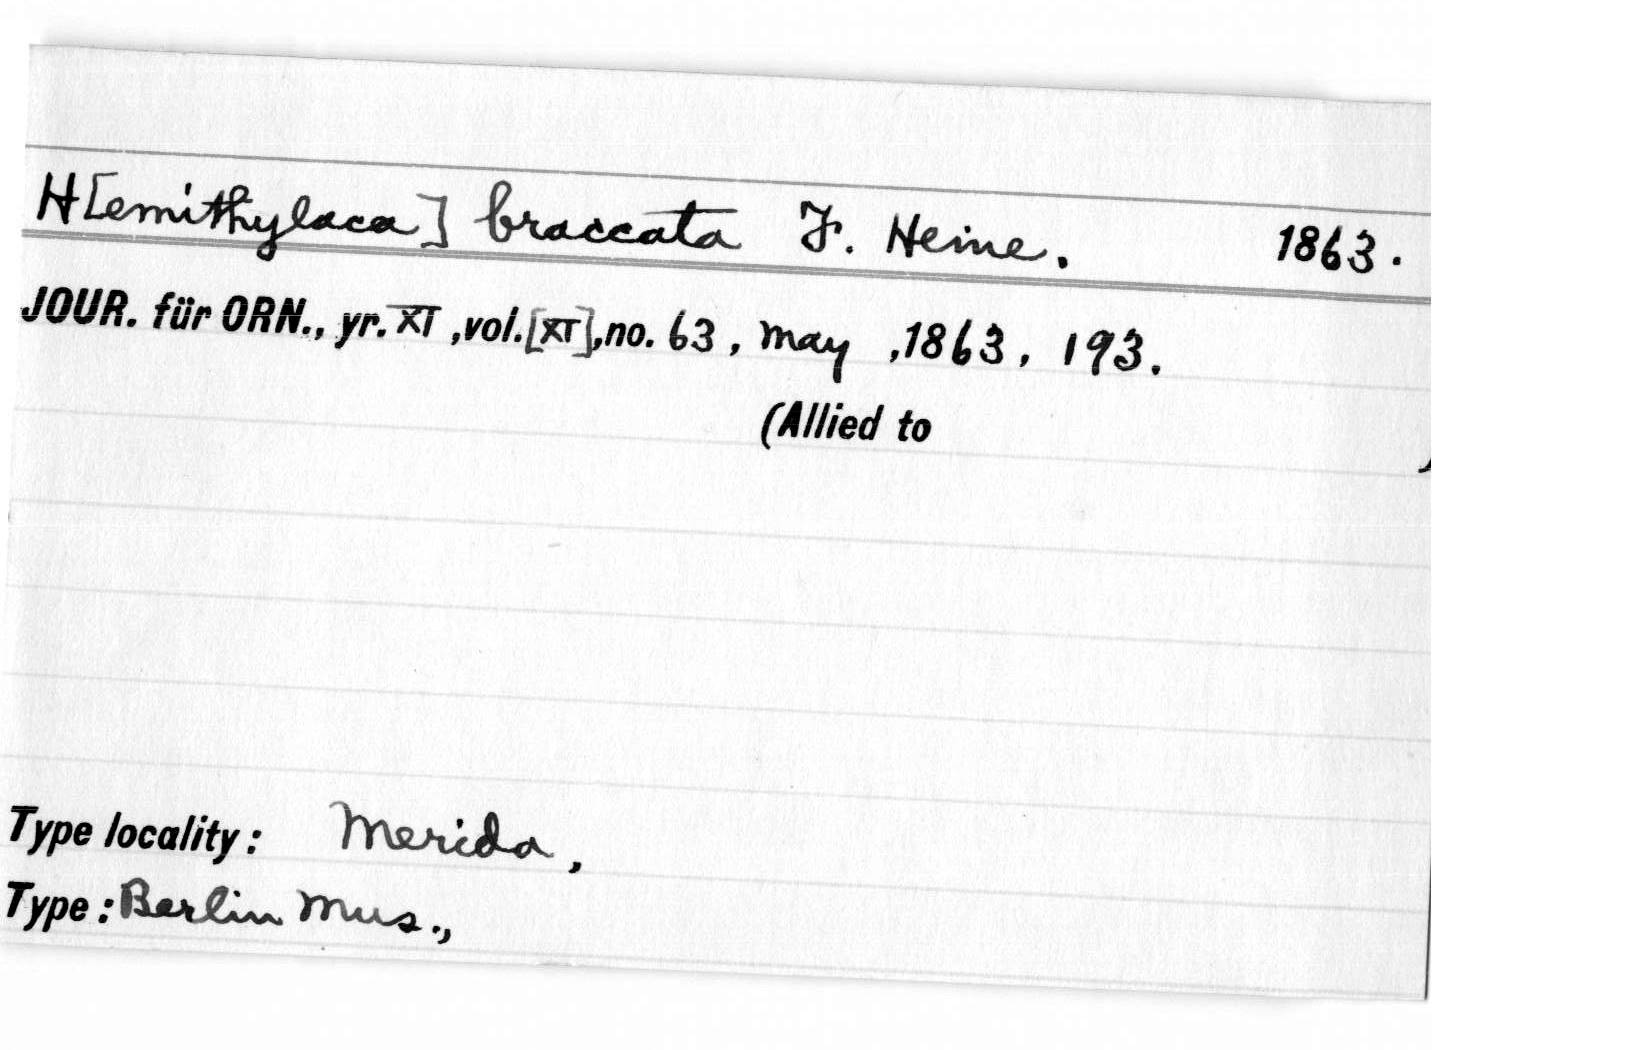 H[emithylaca] braccata F. Heine. 1863.
JOUR. für ORN., yr. XI, vol. [XI], no. 63, May, 1863, 193.
(Allied to )
Type locality: Merida,
Type: Berlin Mus.,